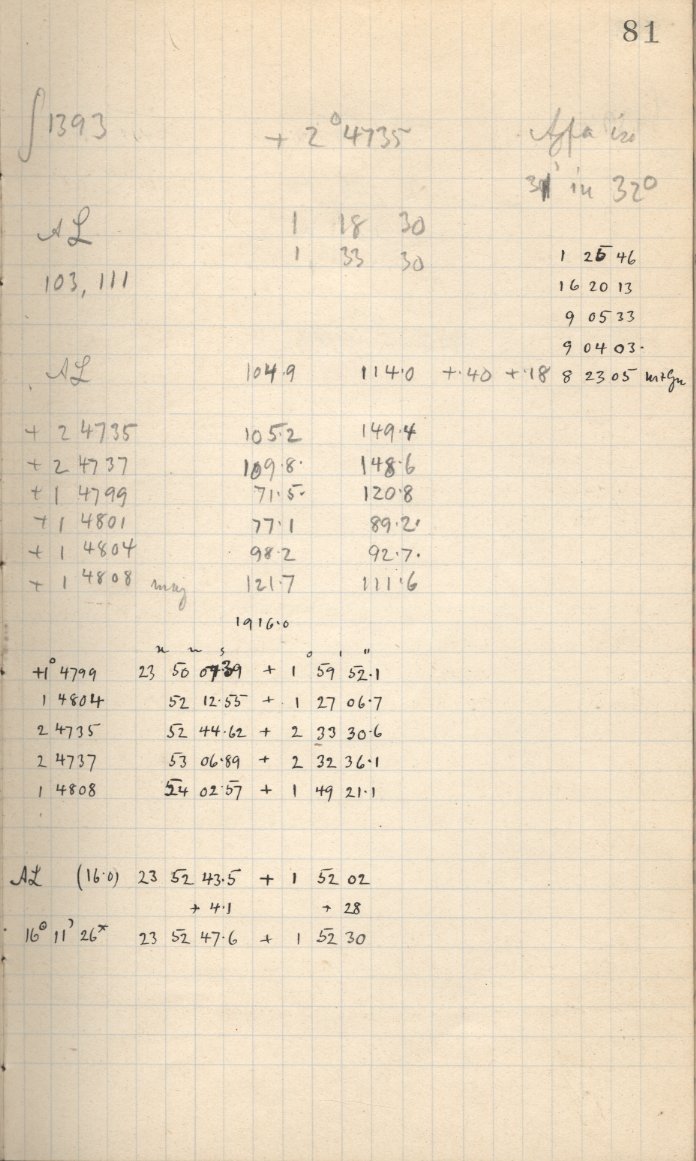 81
∫1393 + 2° 4735 Agfa iso
31' in 32°
AL 1 18 30
1 33 30
103, 111
1 25 46
16 20 13
9 05 33
9 04 03.
AL 104.9 114.0 +.40 +.18 8 23 05
+ 2 4735 105.2 149.4
+ 2 4737 109.8. 148.6
+ 1 4799 71.5. 120.8
+ 1 4801 77.1 89.2.
+ 1 4804 98.2 92.7.
+ 1 4808 mag 121.7 111.6
1916.0
° ' "
+1° 4799 23 50 + 1 59 52.1
1 4804 52 12.55 + 1 27 06.7
2 4735 52 44.62 + 2 33 30.6
2 4737 53 06.89 + 2 32 36.1
1 4808 54 02.57 + 1 49 21.1
AL (16.0) 23 52 43.5 + 1 52 02
+ 4.1 + 28
16° 11' 26" 23 52 47.6 + 1 52 30